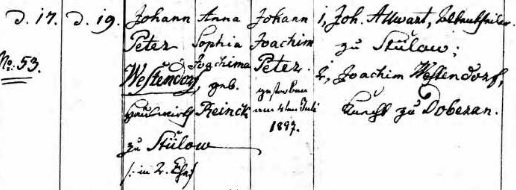 d. 17. d. 19. Johann Anna Johann 1, Joh. Allwart,
Peter Sophia Joachim zu Stülow;
No. 53. Westendorf, Joachima Peter. 2, Joachim Westendorf,
geb. gestorben Knecht zu Doberan.
Hauswirth Reinck am 4ten Juli
zu Stülow 1897.
/: in 2. Ehe/